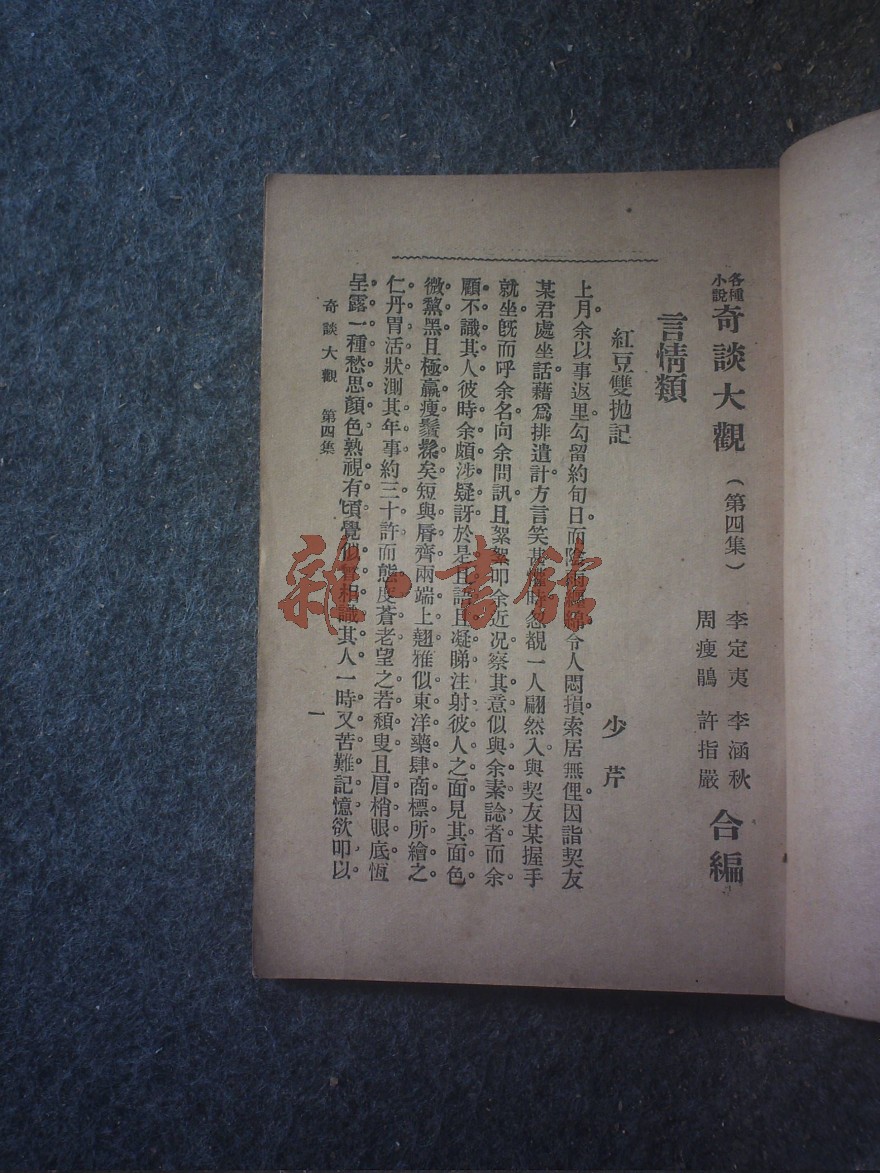 各種小說 奇談大觀（第四集） 李定夷 李涵秋 周瘦鵑 許指嚴 合編
言情類
紅豆雙拋記 少芹
上月余以事返里勾留約旬日而陰雨令人悶損索居無俚因詣契友
某君處坐話藉爲排遣計方言笑甚忽覩一人翩然入與契友某握手
就坐旣而呼余名向余問訊且絮絮叩余近况察其意似與余素諗者而余
顧不識其人彼時余頗涉疑訝於是且語且凝睇注射彼人之面見其面色
微黧黑且極羸瘦鬚鬑矣短與唇齊兩端上翹雅似東洋藥肆商標所繪之
仁丹胃活狀測其年事約三十許而態度蒼老望之若頹叟且眉梢眼底恆
呈露一種愁思顏色熟視有頃覺似曾相識其人一時又苦難記憶欲叩以
奇談大觀 第四集 一
雜·書館